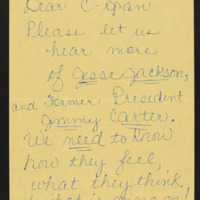 Dear C-Span
Please let us
hear more
of Jesse Jackson,
and Former President
Jimmy Carter.
We need to know
how they feel,
what they think,